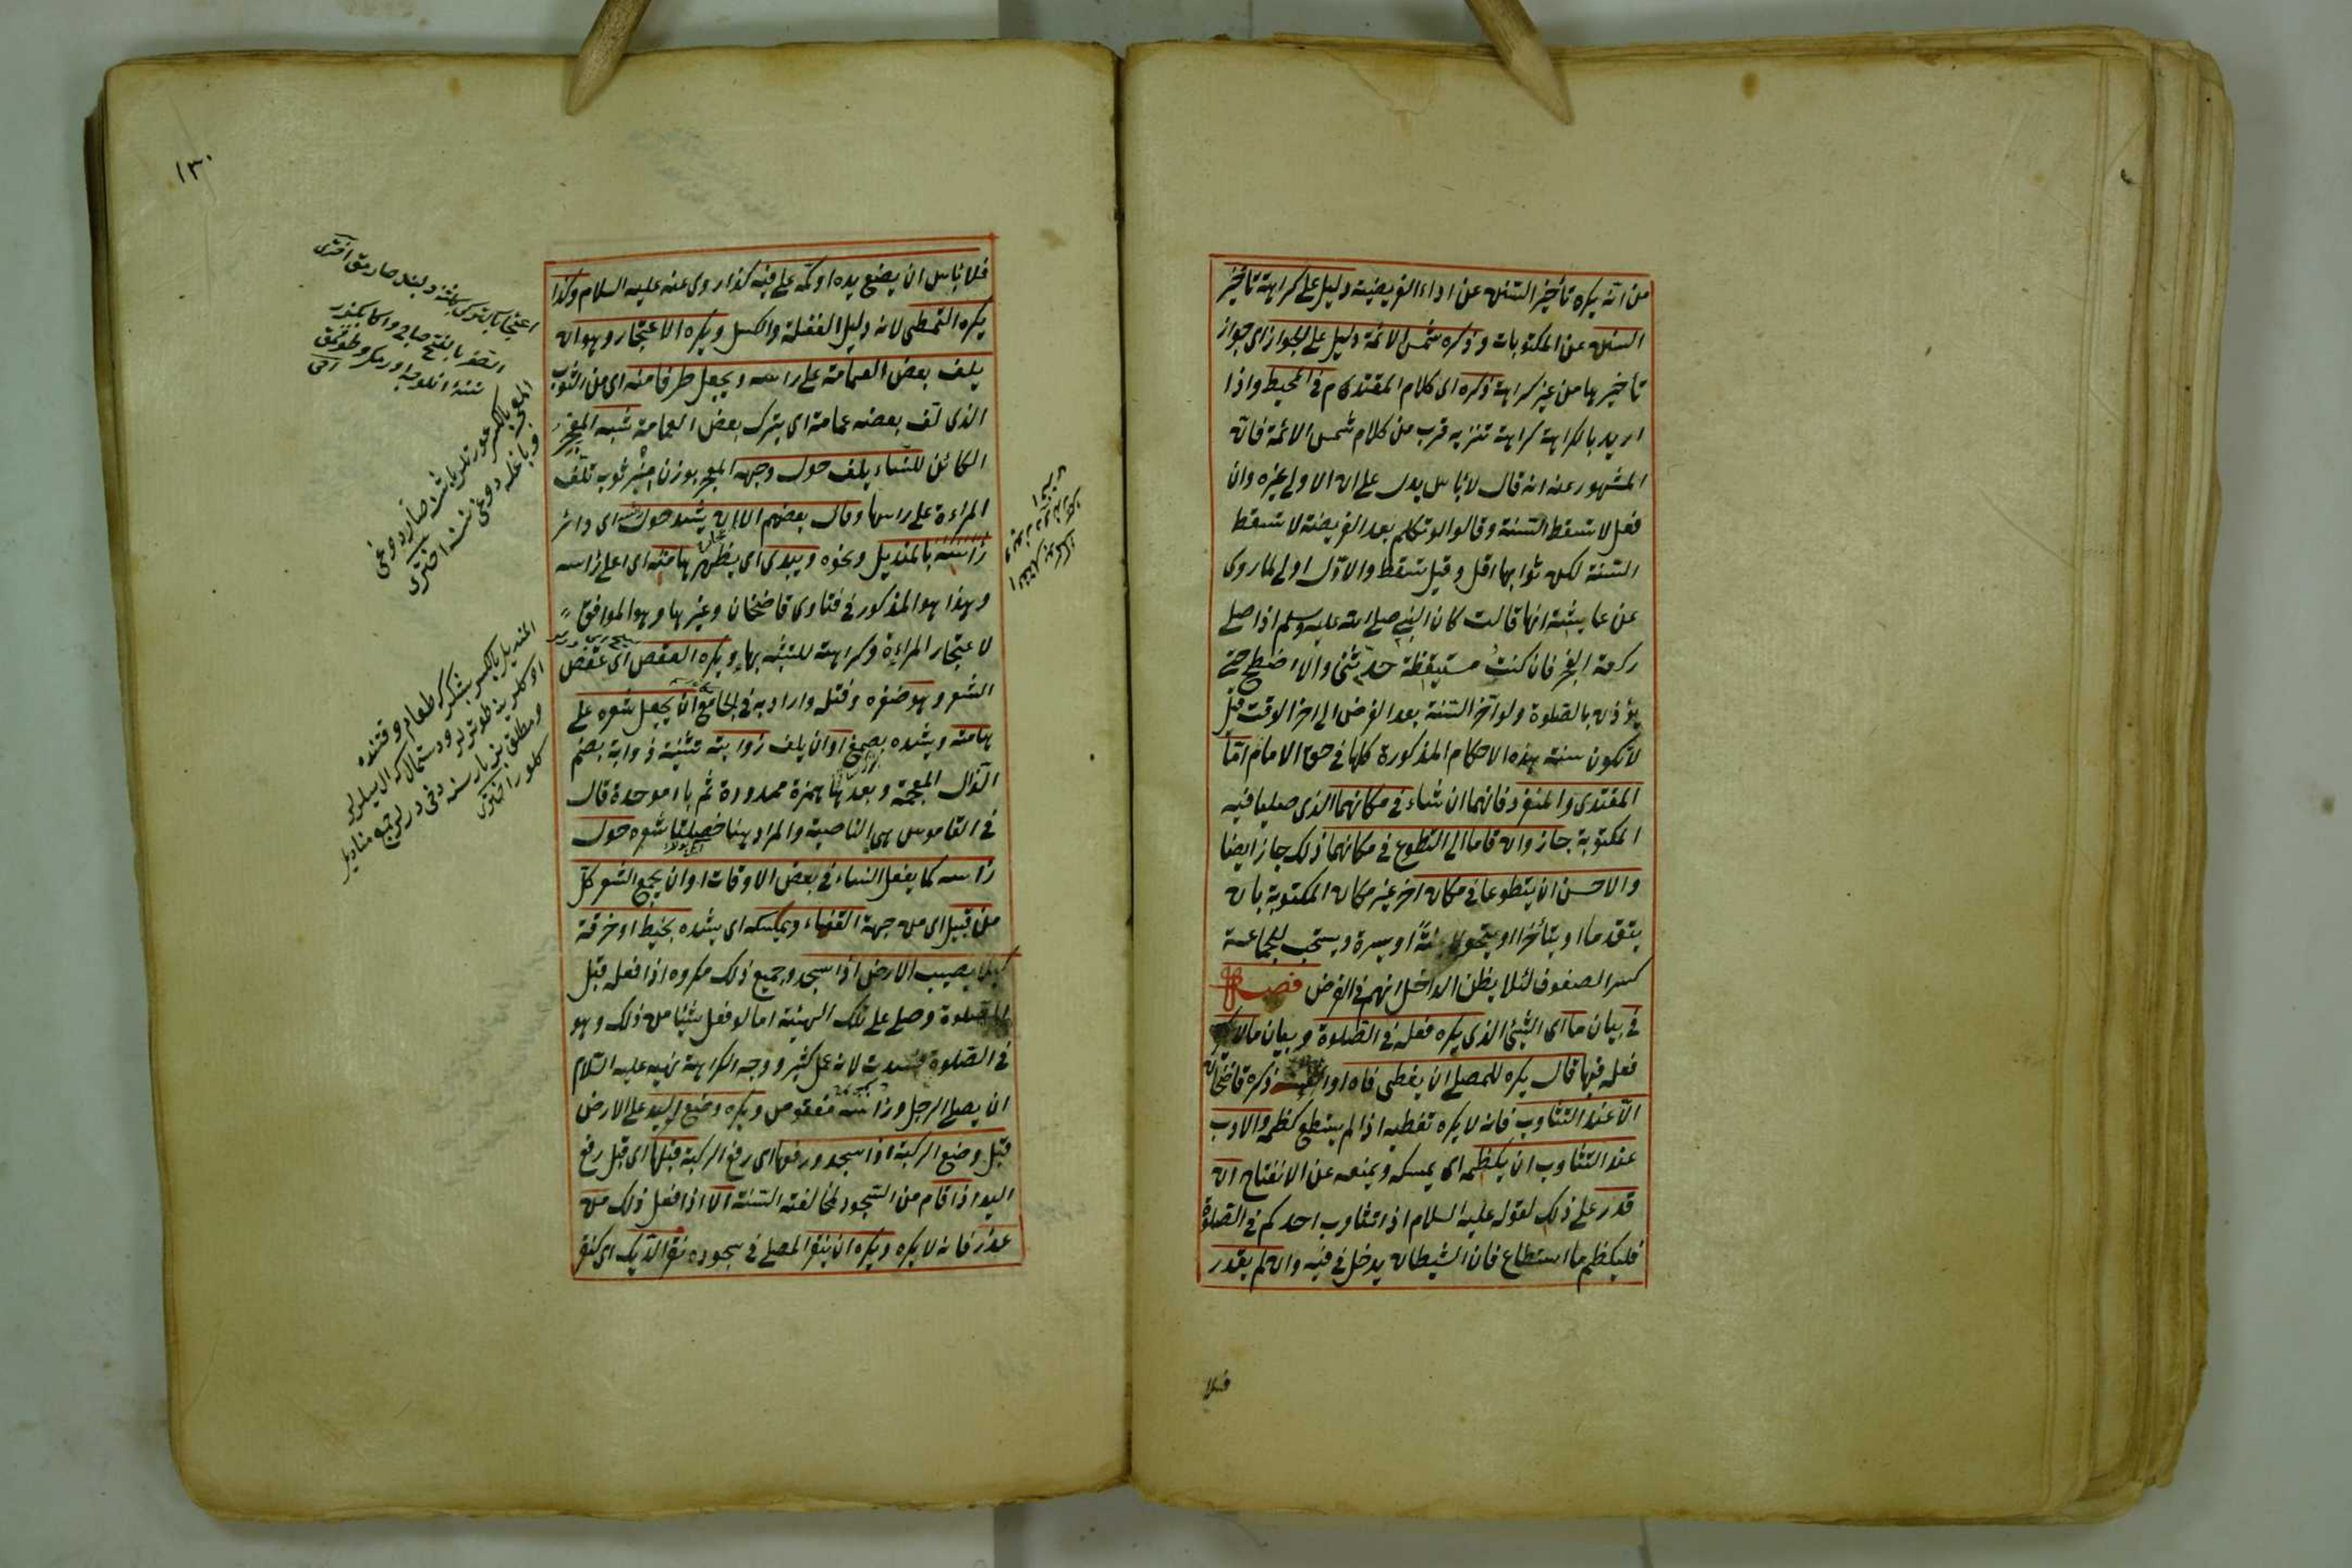 من انه يكره تأخير السنن عن اداء الفريضة دليل على كراهة تأخير
السنن عن المكتوبات وذكره شمس الائمة دليل على الجواز اى جواز
تأخيرها من غير كراهة ذكره اى كلام المقتدى م فى المحيط واذا
اريد بالكراهة كراهة تنزيه قرب من كلام شمس الائمة فانه
المشهور عنه انه قال لا بأس يدل على ان الاولى غيره وان
فعل لا تسقط السنة وقالوا لو تكلم بعد الفريضة لا تسقط
السنة لكن ثوابها اقل وقيل تسقط والاول اولى لما روى
عن عايشة انها قالت كان النبى صلى الله عليه وسلم اذا صلى
ركعة الفجر فان كنت مستيقظة حدثنى والا اضطجع حتى
يؤذن بالصلوة ولو آخر السنة بعد الفرض الى اخر الوقت قيل
لا تكون سنة هذه الاحكام المذكورة كلها فى حق الامام اما
المقتدى والمنفرد فانهما ان شاء فى مكانهما الذى صليا فيه
المكتوبة جاز وان قاما الى التطوع فى مكانهما ذلك جاز ايضا
والاحسن ان يتطوعا فى مكان اخر غير مكان المكتوبة بان
يتقدما او يتأخرا او يتحولا يمنة او يسرة ويستحب للجماعة
كسر الصفوف لئلا يظن الداخل انهم فى الفرض فصل
فى بيان ما اى الشئ الذى يكره فعله فى الصلوة وبيان ما لا يكره
فعله فيها قال يكره للمصلى ان يغطى فاه او انفه ذكره قاضخان
الا عند التثاوب فانه لا يكره تغطيه اذا لم يستطع كظمه والادب
عند التثاوب ان يكظمه اى يمسكه ويمنعه عن الانفتاح ان
قدر على ذلك لقوله عليه السلام اذا تثاوب احدكم فى الصلوة
فليكظم ما استطاع فان الشيطان يدخل فى فيه وان لم يقدر
فلا
١٣٠
فلا بأس ان يضع يده او كمه على فيه كذا روى عنه عليه السلام وكذا
يكره التمطى لانه دليل الغفلة والكسل ويكره الاعتجار وهو ان
يلف بعض العمامة على راسه ويجعل طرفا منه اى من الثوب
الذى لف بعضه عمامة اى يترك بعض العمامة شبه المعجر
الكائن للنساء يلف حول وجهه المعجر بوزن منبر ثوب تلف
المراءة على راسها وقال بعضهم الا ان يشد حول اى دائر
رأسه بالمنديل ونحوه ويبدى اى يظهر هامته اى اعلى رأسه
وهذا هو المذكور فى فتاوى قاضخان وغيرها وهو الموافق
لاعتجار المراءة وكراهته للتشبه بها ويكره العقص اى عقص
الشعر وهو ضفره وفتله واراد به فى الجامع ان يجعل شعره على
هامته ويشده بصمغ او ان يلف ذوابته تثنية ذوابة بضم
الذال المعجمة وبعدها همزة ممدودة ثم باء موحدة قال
فى القاموس هى الناصية والمراد هنا خصلتا شعره حول
رأسه كما يفعل النساء فى بعض الاوقات او ان يجمع الشعر كله
من قبل اى من جهة القفاء ويمسكه اى يشده بخيط او خرقة
كيلا يصيب الارض اذا سجد وجميع ذلك مكروه اذا فعله قبل
الصلوة وصلى على تلك الهيئة اما لو فعل شيئا من ذلك وهو
فى الصلوة فسدت لانه عمل كثير ووجه الكراهة نهيه عليه السلام
ان يصلى الرجل ورأسه معقوص ويكره وضع اليد على الارض
قبل وضع الركبة اذا سجد ورفعها اى رفع الركبة قبلها اى قبل رفع
اليد اذا قام من السجود لمخالفة السنة الا اذا فعل ذلك من
عذر فانه لا يكره ويكره ان ينقر المصلى فى سجوده نقر الديك اى كنقر